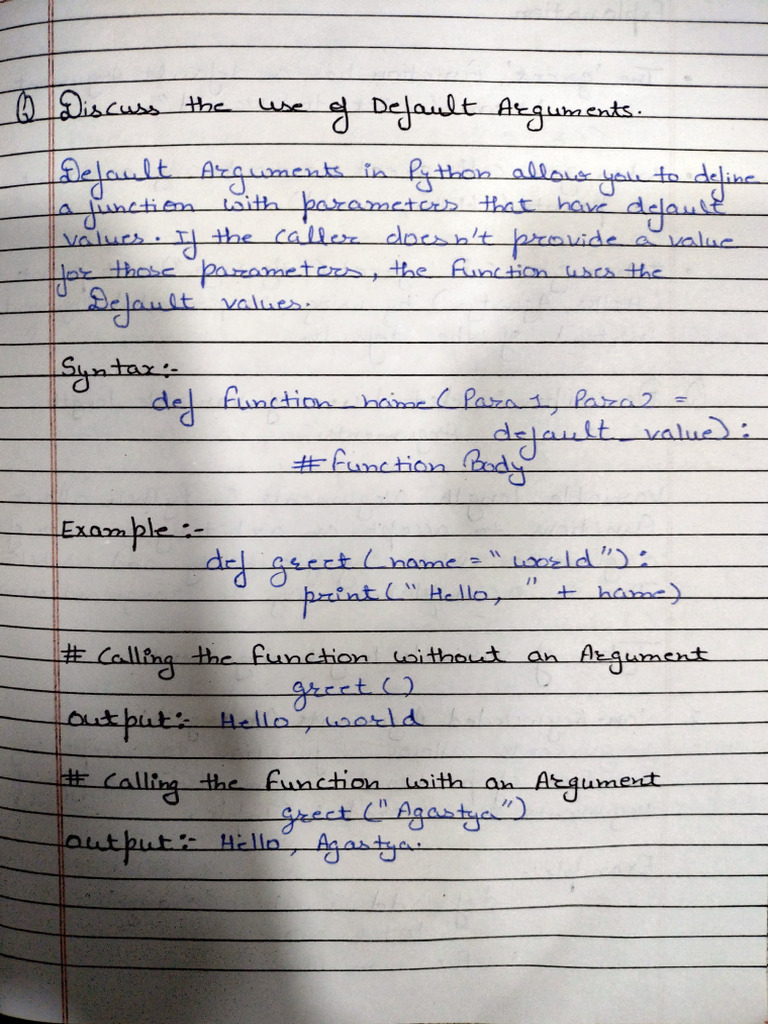 Q Discuss the use of Default Arguments.
Default Arguments in Python allows you to define
a function with parameters that have default
values. If the caller doesn't provide a value
for those parameters, the function uses the
Default values.
Syntax:-
def function_name(Para 1, Para2 =
default_value):
# Function Body
Example:-
def greet(name = "world"):
print("Hello, " + name)
# Calling the function without an Argument
greet()
output:- Hello, world
# Calling the function with an Argument
greet("Agastya")
output:- Hello, Agastya.